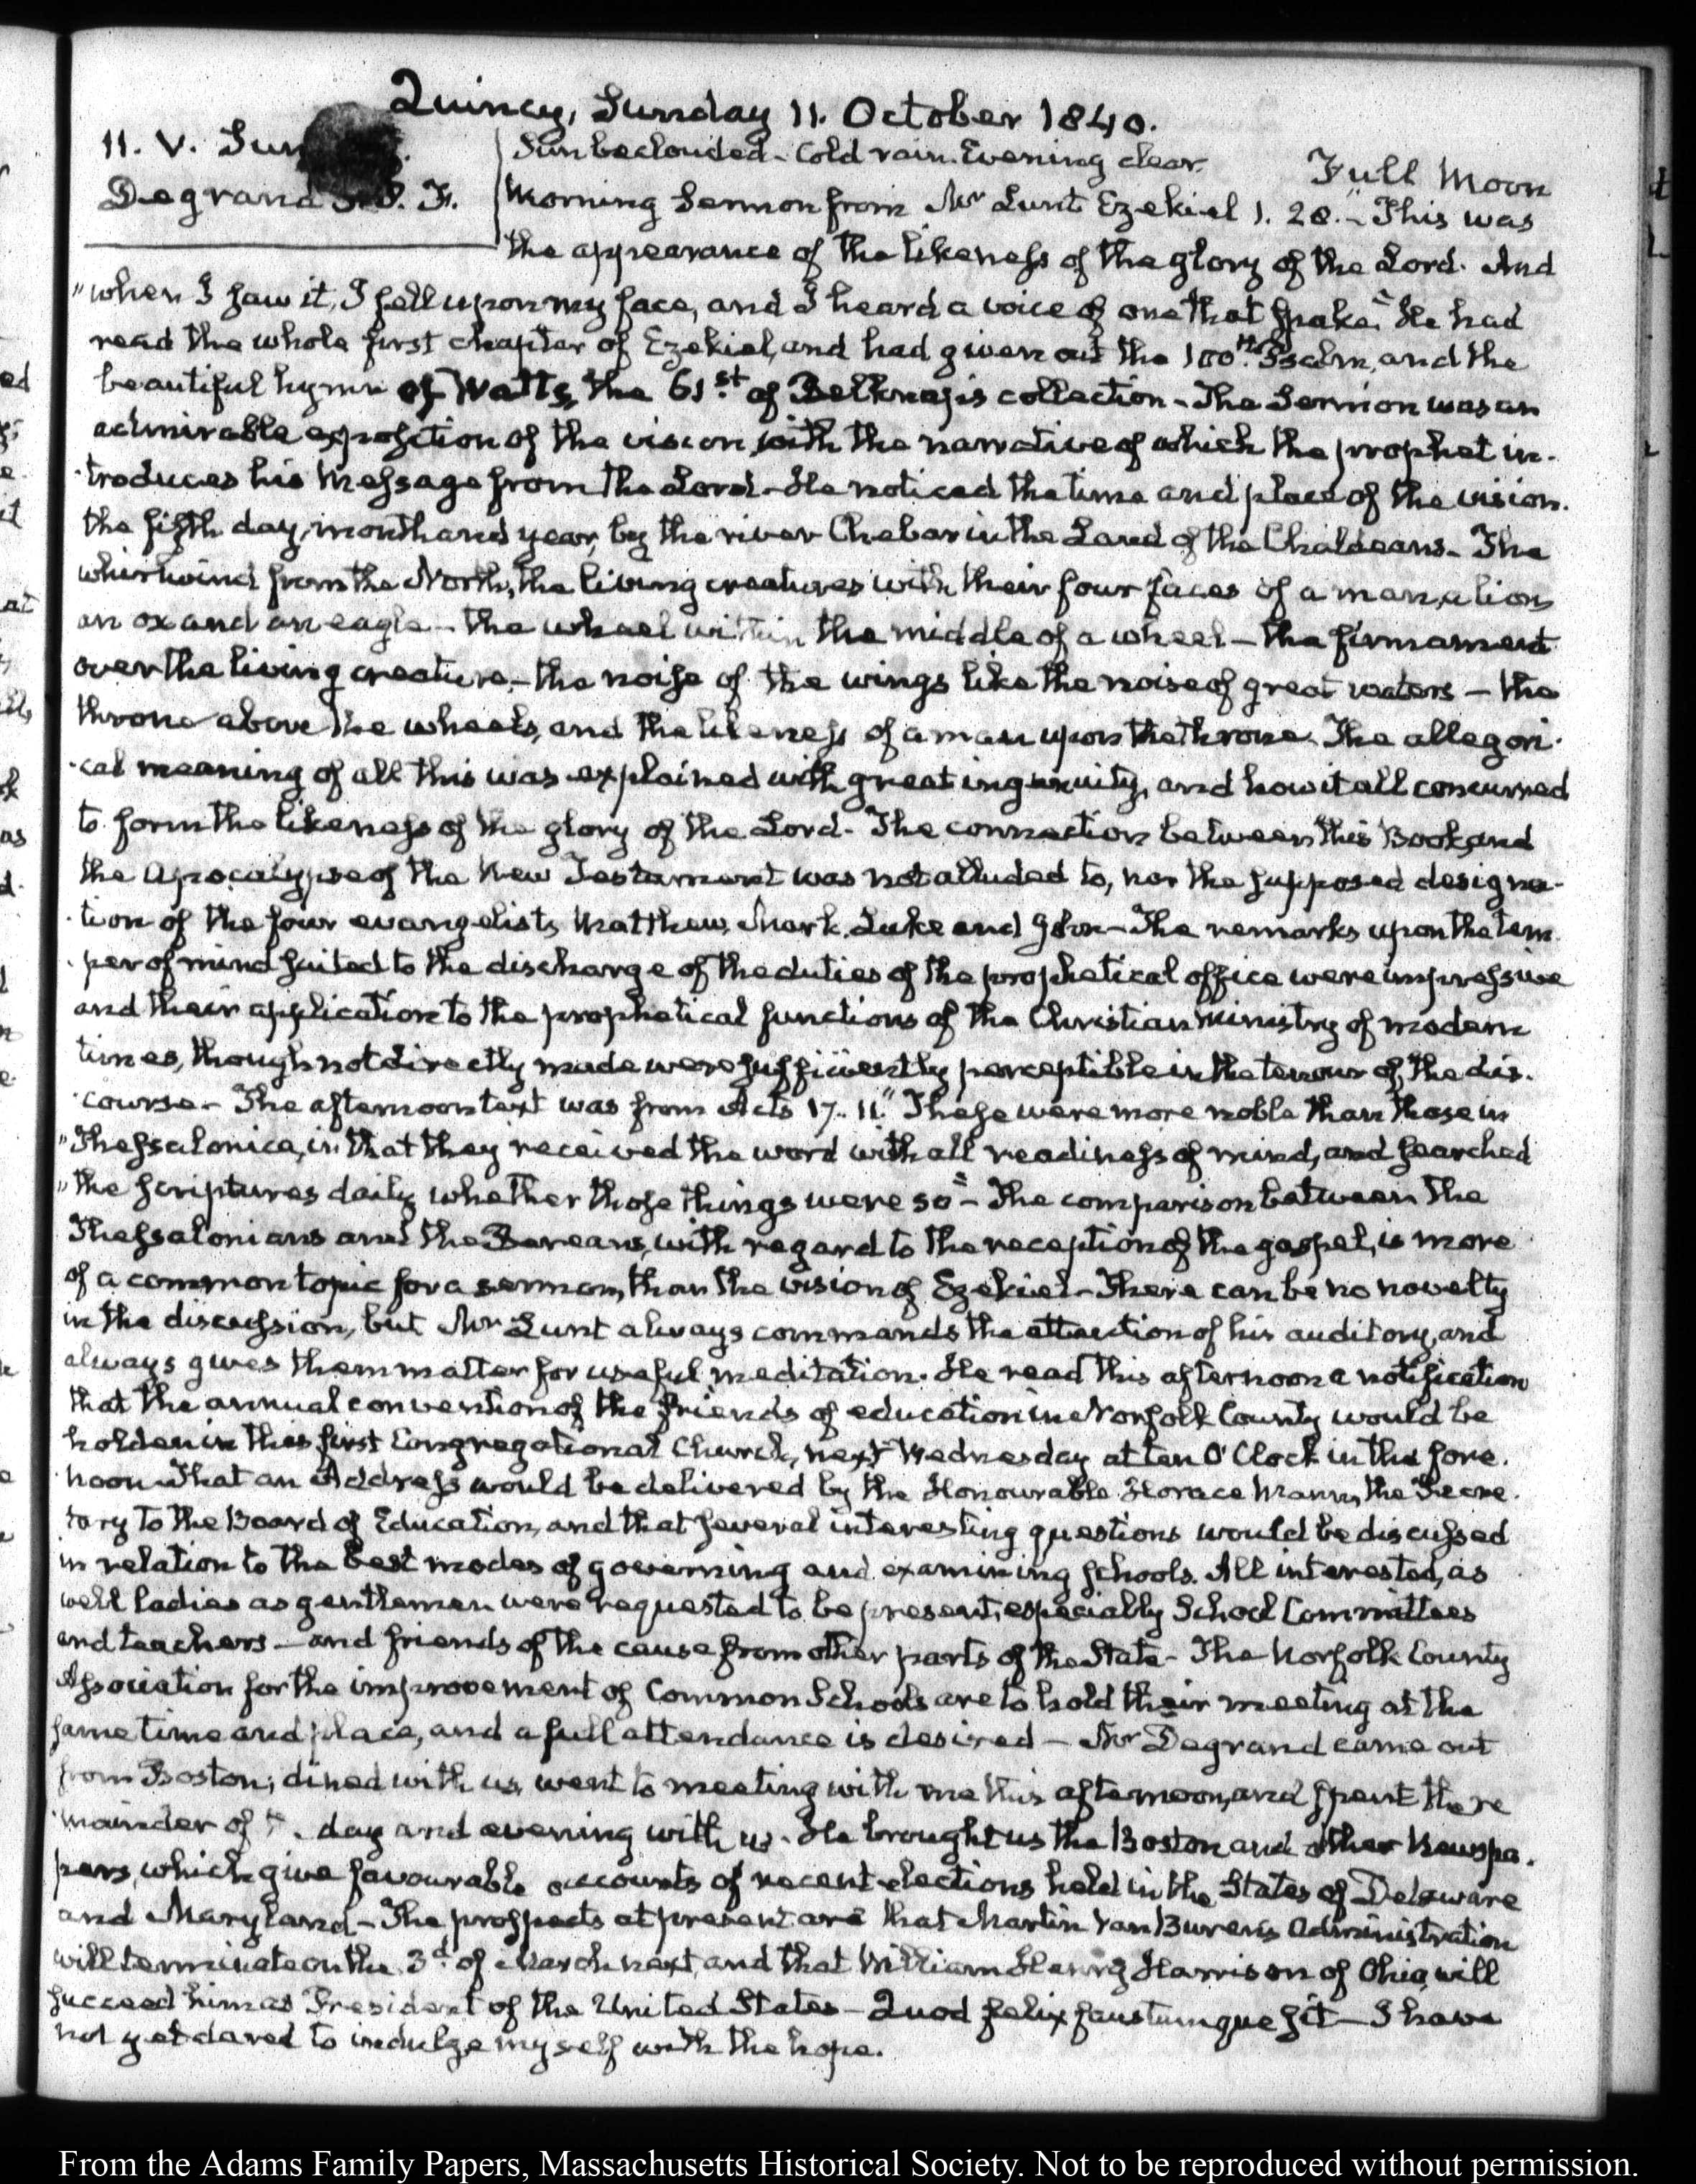 Quincy, Sunday 11. October 1840.
11. V. Sun
Degrand P. P. F.
Sun beclouded - Cold rain. Evening clear. Full Moon
Morning Sermon from Mr Lunt Ezekiel 1. 28. "This was
the appearance of the likeness of the glory of the Lord. And
"when I saw it, I fell upon my face, and I heard a voice of one that spake." He had
read the whole first chapter of Ezekiel, and had given out the 100th Psalm, and the
beautiful hymn of Watts, the 61st of Belknap's collection - The Sermon was an
admirable exposition of the vision with the narrative of which the prophet in-
troduces his Message from the Lord - He noticed the time and place of the vision.
the fifth day, month and year, by the river Chebar in the Land of the Chaldeans - The
whirlwind from the North, the living creatures with their four faces of a man, a lion,
an ox and an eagle - the wheel within the middle of a wheel - the firmament
over the living creature, - the noise of the wings like the noise of great waters - the
throne above the wheels, and the likeness of a man upon the throne. The allegori-
cal meaning of all this was explained with great ingenuity, and how it all concurred
to form the likeness of the glory of the Lord - The connection between this Book, and
the Apocalypse of the New Testament was not alluded to, nor the supposed designa-
tion of the four evangelists Matthew, Mark, Luke and John - The remarks upon the tem-
per of mind suited to the discharge of the duties of the prophetical office were impressive
and their application to the prophetical functions of the Christian Ministry of modern
times, though not directly made were sufficiently perceptible in the tenour of the dis-
course - The afternoon text was from Acts 17. 11. "These were more noble than those in
"Thessalonica, in that they received the word with all readiness of mind, and searched
"the scriptures daily, whether those things were so" - The comparison between the
Thessalonians and the Bereans, with regard to the reception of the gospel, is more
of a common topic for a sermon, than the vision of Ezekiel - There can be no novelty
in the discussion, but Mr Lunt always commands the attention of his auditory, and
always gives them matter for useful meditation. He read this afternoon a notification
that the annual convention of the friends of education in Norfolk County would be
holden in this first Congregational Church, next Wednesday at ten O'Clock in the fore-
noon That an Address would be delivered by the Honourable Horace Mann, the Secre-
tary to the Board of Education, and that several interesting questions would be discussed
in relation to the best modes of governing and examining schools. All interested, as
well ladies as gentlemen were requested to be present, especially School Committees
and teachers - and friends of the cause from other parts of the State - The Norfolk County
Association for the improvement of Common Schools are to hold their meeting at the
same time and place, and a full attendance is desired - Mr Degrand came out
from Boston; dined with us, went to meeting with me this afternoon, and spent the re
mainder of day and evening with us. He brought us the Boston and other Newspa-
pers, which give favourable accounts of recent elections held in the States of Delaware
and Maryland - The prospects at present are that Martin Van Buren's Administration
will terminate on the 3d of March next, and that William Henry Harrison of Ohio, will
succeed him as President of the United States - Quod felix faustumque sit - I have
not yet dared to indulge myself with the hope.
From the Adams Family Papers, Massachusetts Historical Society. Not to be reproduced without permission.